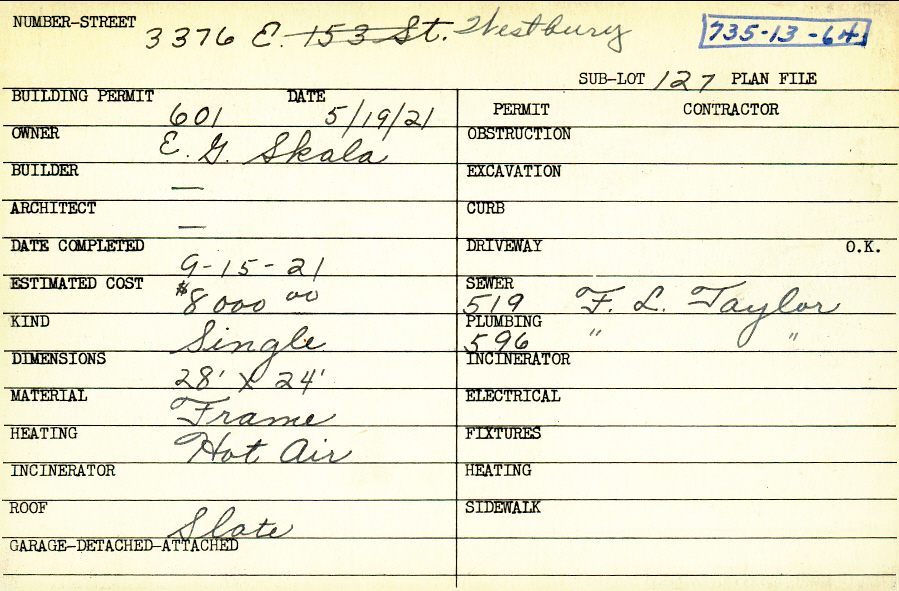 NUMBER-STREET 3376 E. 153 St. Westbury 735-13-64
SUB-LOT 127 PLAN FILE
BUILDING PERMIT 601 DATE 5/19/21
OWNER E. G. Skala
BUILDER —
ARCHITECT —
DATE COMPLETED 9-15-21
ESTIMATED COST $8000 00
KIND Single
DIMENSIONS 28' X 24'
MATERIAL Frame
HEATING Hot Air
INCINERATOR
ROOF Slate
GARAGE-DETACHED-ATTACHED
PERMIT CONTRACTOR
OBSTRUCTION
EXCAVATION
CURB
DRIVEWAY O.K.
SEWER 519 F. L. Taylor
PLUMBING 596 " "
INCINERATOR
ELECTRICAL
FIXTURES
HEATING
SIDEWALK